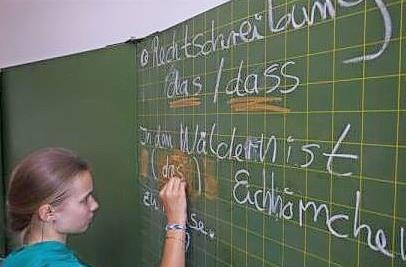 Rechtschreibung
das / dass
In den Wäldern ist
(das) Eichhörnchen
zu se..